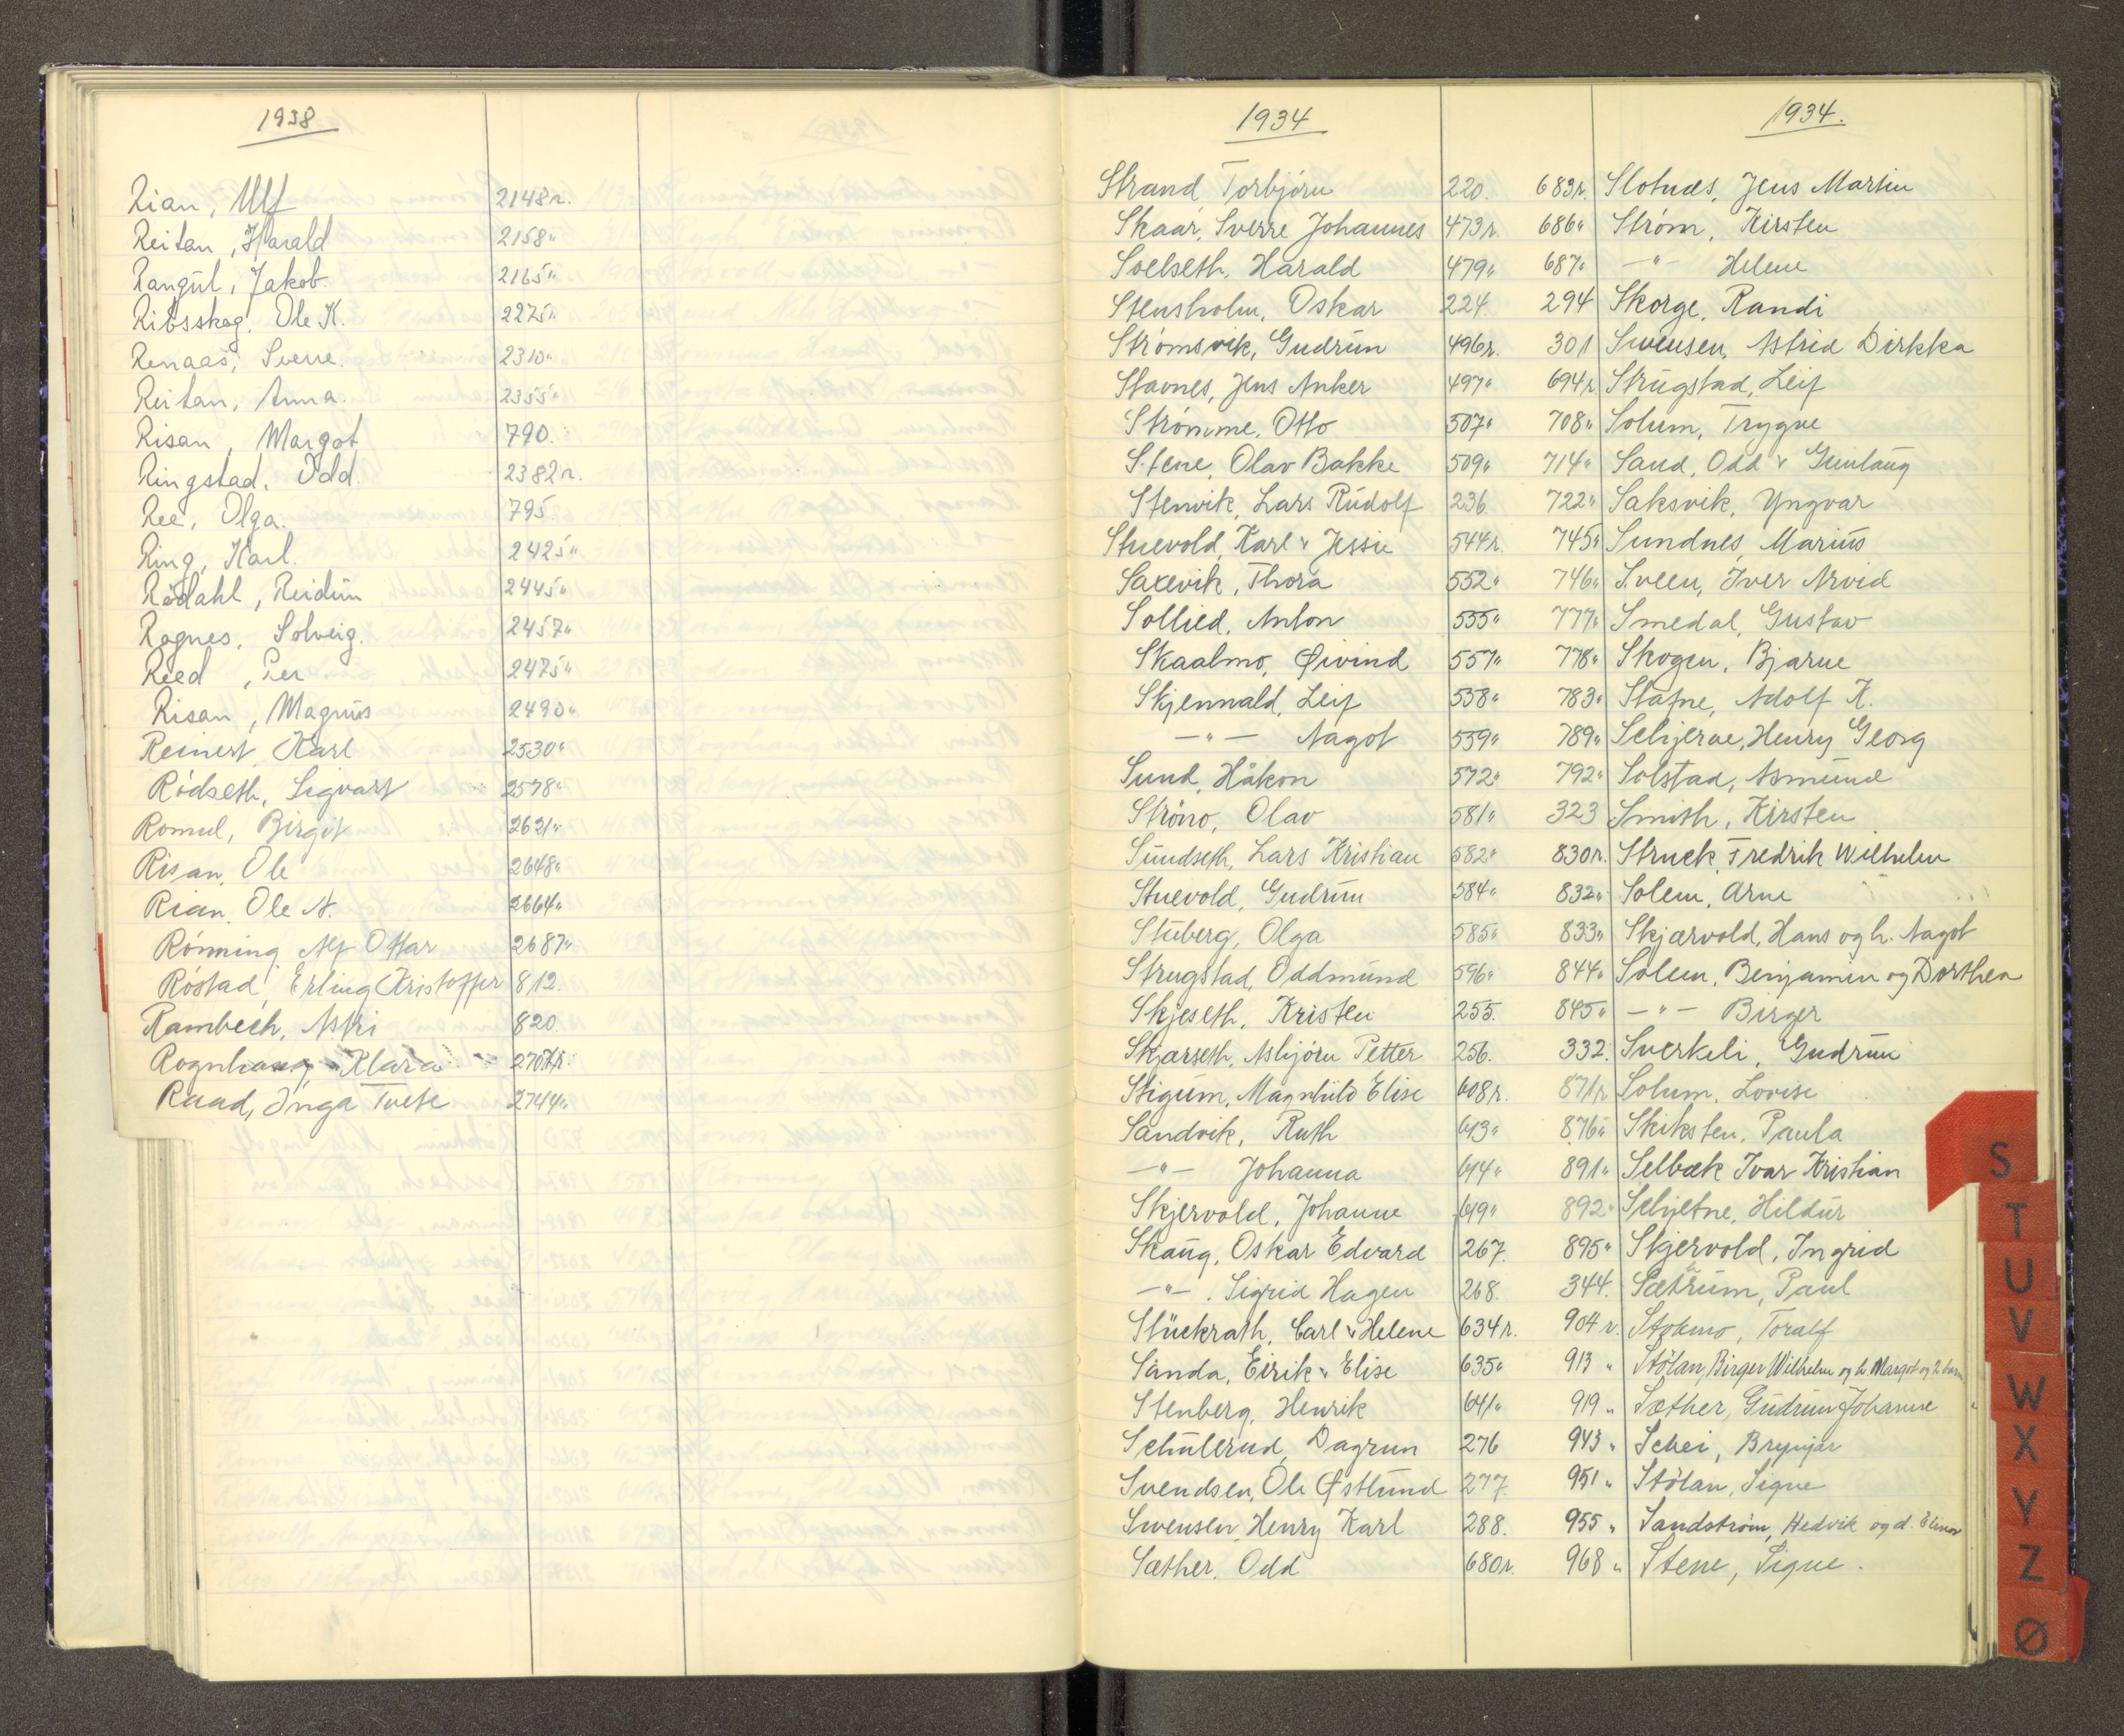 1938
Rian, Ulf 2148r.
Reitan, Harald 2158"
Rangul, Jakob. 2165"
Ribsskog, Ole K. 2275"
Renaas, Sverre. 2310"
Reitan, Anna. 2355"
Risan, Margot 790.
Ringstad, Odd. 2382r.
Ree, Olga. 795.
Ring, Karl. 2425"
Rødahl, Reidun 2445"
Ragnes, Solveig. 2457"
Reed, Per 2475"
Risan, Magnus 2490"
Reinert, Karl 2530"
Rödseth, Sigvart 2578"
Romul, Birgit 2621"
Risan, Ole 2648"
Rian, Ole N. 2664"
Rönning Alf Ottar 2687"
Röstad, Erling Kristoffer 812.
Rambech, Aski 820.
Rognhaug, Klara 2707r.
Raad, Inga Tvete 2744"
1934
Strand, Torbjörn 220.
Skaar, Sverre Johannes 473r.
Soelseth, Harald 479"
Stensholm, Oskar 224
Strömsvik, Gudrun 496r.
Stavnes, Jens Anker 497"
Strömme, Otto 507"
Stene, Olav Bakke 509"
Stenvik, Lars Rudolf 236
Stuevold, Karl & Jessie 544r.
Saxevik, Thora 552"
Sollied, Anton 555"
Skaalmo, Øivind 557"
Skjennald, Leif 558"
—"— Aagot 559"
Sund, Håkon 572"
Ströno, Olav 581"
Sundseth, Lars Kristian 582"
Stuevold, Gudrun 584"
Stuberg, Olga 585"
Strugstad, Oddmund 596"
Skjeseth, Kristen 255.
Skjærseth, Asbjörn Petter 256.
Stigum, Magnhild Elise 608r.
Sandvik, Ruth 613"
—"— Johanna 614"
Skjervold, Johanne 619"
Skaug, Oskar Edvard 267.
—"—. Sigrid Hagen 268.
Stückrath, Carl & Helene 634r.
Sanda, Eirik & Elise 635"
Stenberg, Henrik 641"
Schulerud, Dagrun 276
Svendsen, Ole Østlund 277.
Swensen, Henry Karl 288.
Sæther, Odd 680r.
1934.
683r. Slotnæs, Jens Martin
686" Ström, Kirsten
687" —"— Helene
294 Skorge, Randi
301 Swensen, Astrid Dirkka
694r Strugstad, Leif
708" Solum, Trygve
714" Sand, Odd & Gunlaug
722" Saksvik, Yngvar
745" Sundnes, Marius
746" Sveen, Iver Arvid
777" Smedal, Gustav
778" Skogen, Bjarne
783" Stafne, Adolf K.
789" Schjerve, Henry Georg
792" Solstad, Asmund
323 Smith, Kirsten
830r. Struck, Fredrik Wilhelm
832" Solem, Arne
833" Skjærvold, Hans og h. Aagot
844" Solem, Benjamin og Dorthea
845" —"— Birger
332. Sverkeli, Gudrun
871r Solum, Lovise
876" Skiksten, Paula
891" Selbæk Ivar Kristian
892" Schjetne, Hildur
895" Skjervold, Ingrid
344. Sætrum, Paul
904 r. Stokmo, Toralf
913 " Stölan, Birger Wilhelm og h. Margot og 2 barn
919 " Sæther, Gudrun Johanne
943 " Schei, Brynjar
951 " Stölan, Signe
955 " Sandström, Hedvik og d. Elinor
968 " Stene, Signe.
S
T
U
V
W
X
Y
Z
Ø